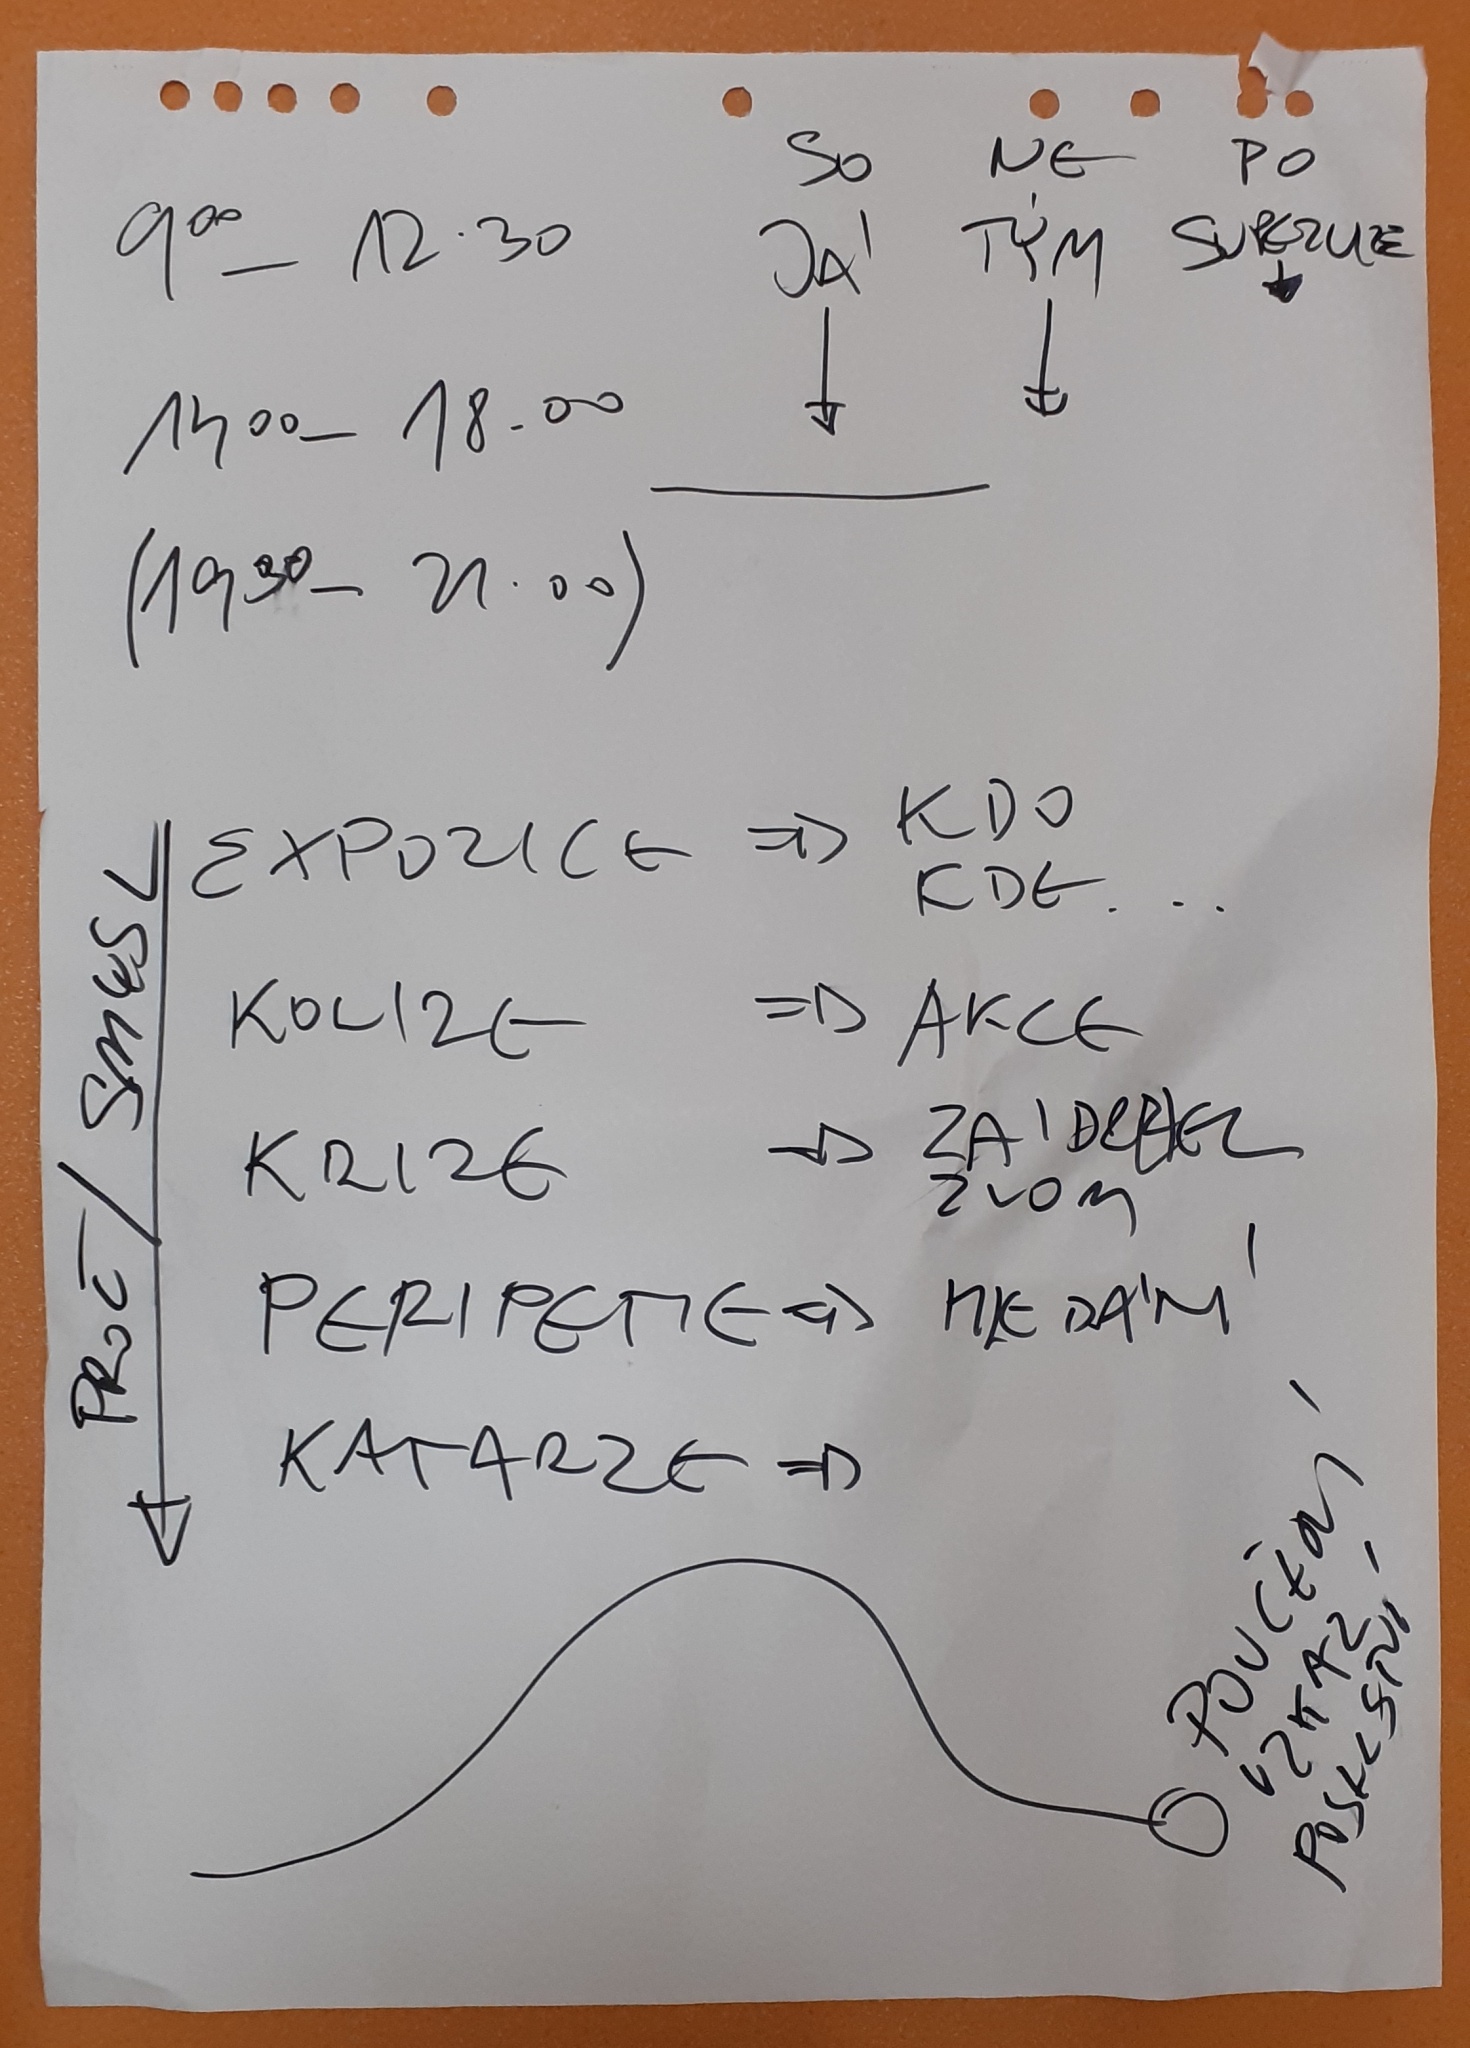 SO NE PO
9⁰⁰ – 12.30 JÁ TÝM SUPERVIZE
14⁰⁰ – 18.00
(19³⁰ – 21.00)
PROČ / SMYSL
EXPOZICE ⇒ KDO
KDE...
KOLIZE ⇒ AKCE
KRIZE ⇒ ZÁDRHEL
ZLOM
PERIPETIE ⇒ HLEDÁNÍ
KATARZE ⇒
POUČENÍ
VZKAZ
POSELSTVÍ